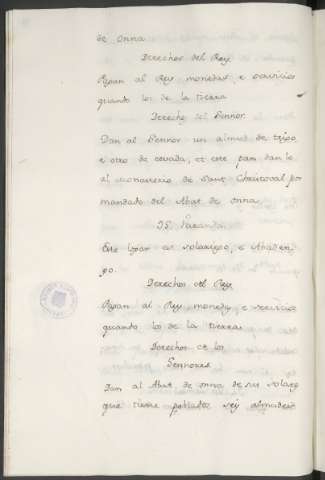 de Onna.
Derechos del Rey.
Pagan al Rey monedas, e servicios
quando los de la tierra.
Derechos del Sennor.
Dan al Sennor un almud de trigo,
e otro de cevada, et este pan dan lo
al monasterio de Sant Christoval por
mandado del Abat de Onna.
Este logar es solariego, e Abaden-
go.
Derechos del Rey.
Pagan al Rey moneda, e servicios
quando los de la tierra.
Derechos de los
Sennores.
Dan al Abat de Onna de su solar
que tiene poblado, seys almudes